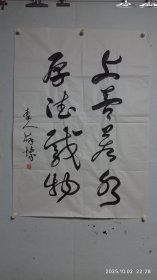 上善若水
厚德载物
2025.10.02 22:28